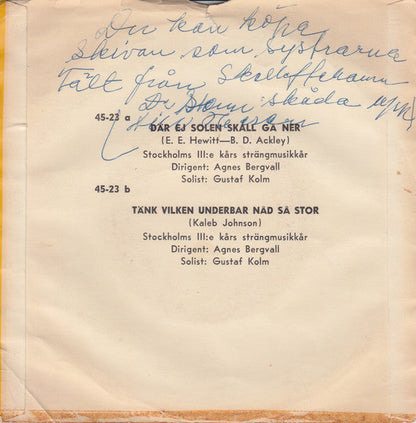 Du kan köpa
skivan som systrarna
Tält från Skelleftehamn
skåda upp
45-23 a
DÄR EJ SOLEN SKALL GÅ NER
(E. E. Hewitt—B. D. Ackley)
Stockholms III:e kårs strängmusikkår
Dirigent: Agnes Bergvall
Solist: Gustaf Kolm
45-23 b
TÄNK VILKEN UNDERBAR NÅD SÅ STOR
(Kaleb Johnson)
Stockholms III:e kårs strängmusikkår
Dirigent: Agnes Bergvall
Solist: Gustaf Kolm